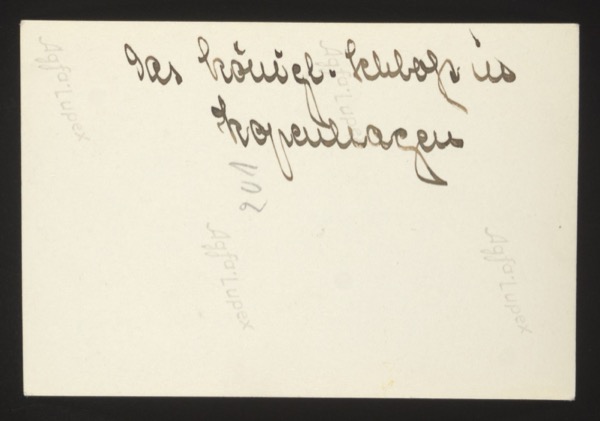 Das königl. Schloß in
Kopenhagen
201
Agfa-Lupex
Agfa-Lupex
Agfa-Lupex
Agfa-Lupex